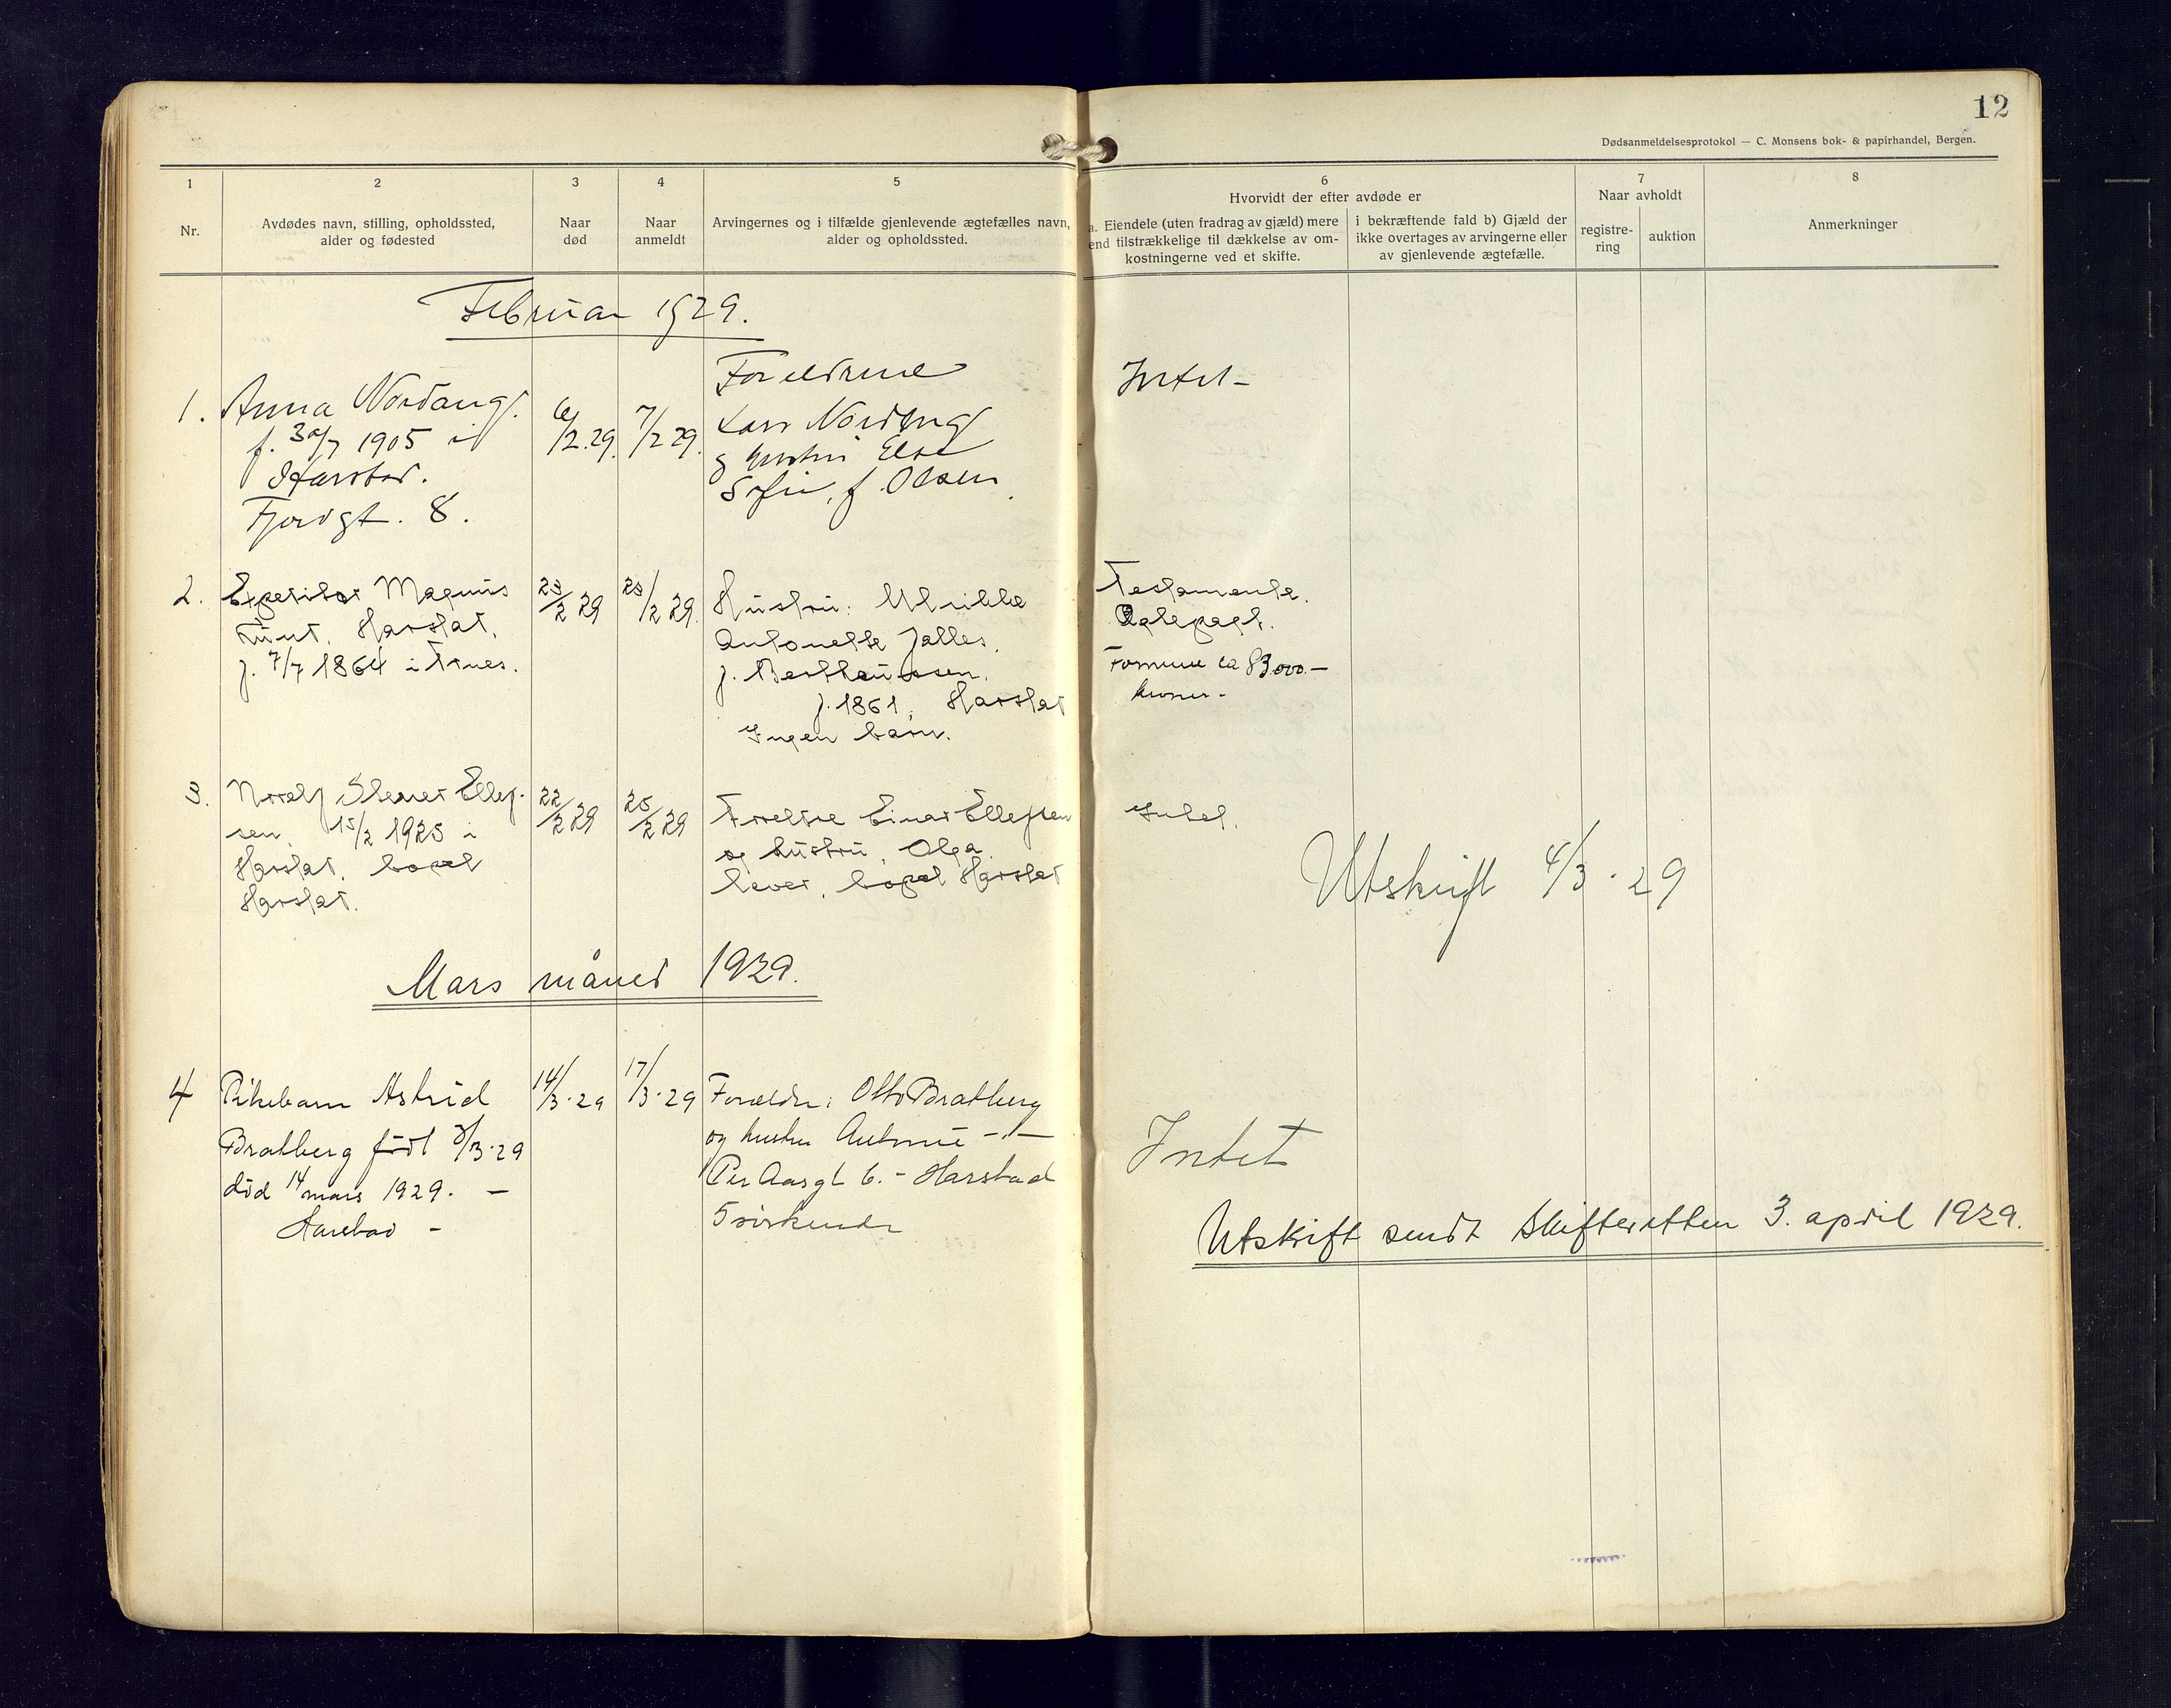 12
Dødsanmeldelsesprotokol — C. Monsens bok- & papirhandel, Bergen.
1
2
3
4
5
6
7
8
Nr.
Avdødes navn, stilling, opholdssted,
alder og fødested
Naar
død
Naar
anmeldt
Arvingernes og i tilfælde gjenlevende ægtefælles navn,
alder og opholdssted.
Hvorvidt der efter avdøde er
a. Eiendele (uten fradrag av gjæld) mere
end tilstrækkelige til dækkelse av om-
kostningerne ved et skifte.
i bekræftende fald b) Gjæld der
ikke overtages av arvingerne eller
av gjenlevende ægtefælle.
Naar avholdt
registre-
ring
auktion
Anmerkninger
Februar 1929.
1.
Anna Nordang.
f. 30/7 1905 i
Harstad.
Fjordgt. 8.
6/2.29.
7/2 29.
Foreldrene
Lars Nordang
og hustru Else
Sofie, f. Olsen.
Intet -
2.
Expeditør Magnus
Harstad.
f. 7/7 1864 i
23/2 29
25/2 29.
Hustru: Ulrikke
Antonette
f. Bertheussen.
f. 1861, Harstad
Ingen barn.
Testamente.
Ektepagt.
Formue ca 83000.—
kroner.-
3.
Ellef-
sen. 15/2 1925 i
Harstad, bopæl
Harstad.
22/2 29
25/2 29
Foreldre Einar Ellefsen
og hustru, Olga,
lever, bopæl Harstad
Intet.
Utskrift 4/3.29
Mars måned 1929.
4
Pikebarn Astrid
Bratberg født /3.29
død 14 mars 1929. —
Harstad -
14/3.29
17/3.29
Forældre: Otto Bratberg
og hustru Antonie -"-
Per Aasgt 6. - Harstad
5 søskende
Intet
Utskrift sendt Skifteretten 3. april 1929.